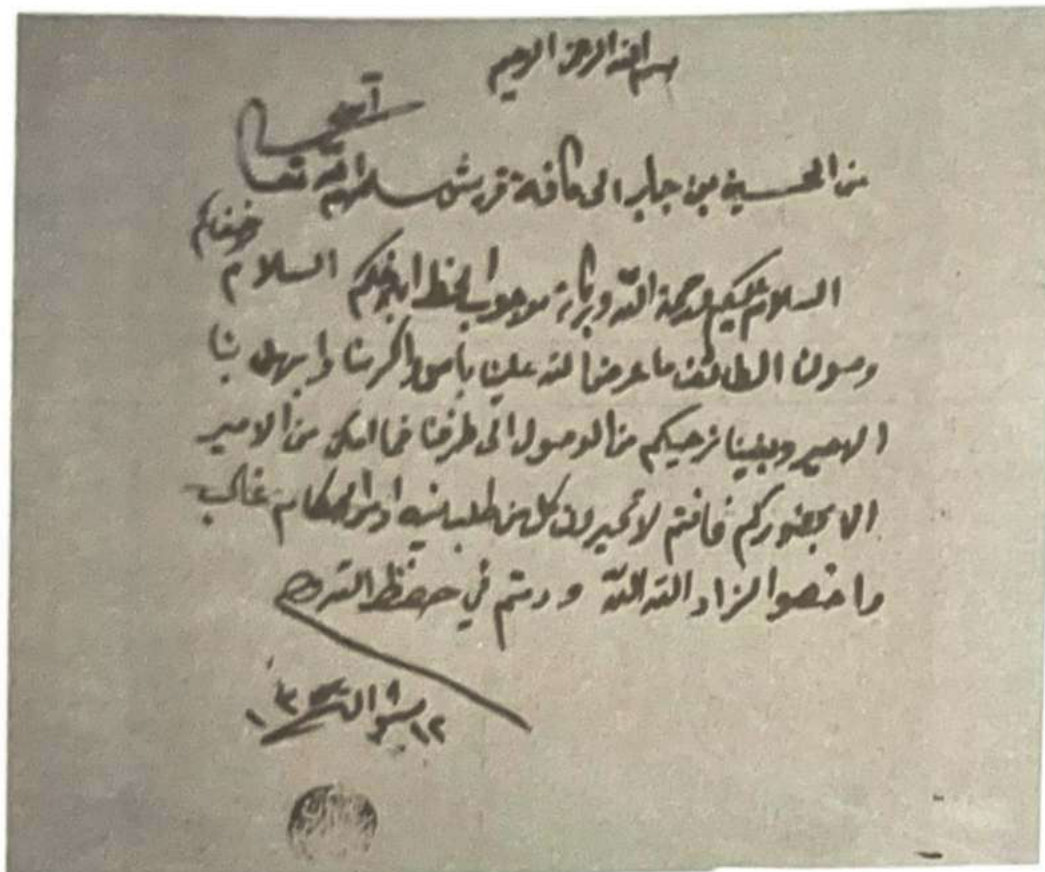 بسم الله الرحمن الرحيم
من الحسين بن جابر الى كافة قريش سلمهم الله تعالى آمين
السلام عليكم ورحمة الله وبركاته موجب الخط ابلاغكم السلام
وصولنا الطائف ما عرضنا لله علينا باس واكرمنا وابهل بنا
الامير وبغينا نرحيكم من الوصول الى طرفنا فما امكن من الامير
الا بحضوركم فانتم لا تحيرون كل من طلبا الحكام غالب
واخصوا لزاد الله الله ودمتم في حفظ الله
١٢ شوال